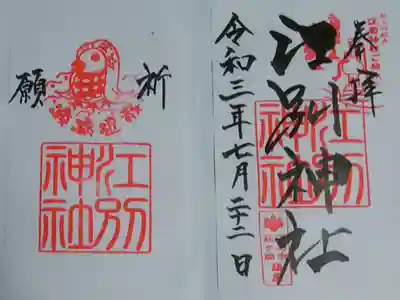 奉拝
江別神社
令和三年七月二十二日
江別
神社
祈
願
江別
神社